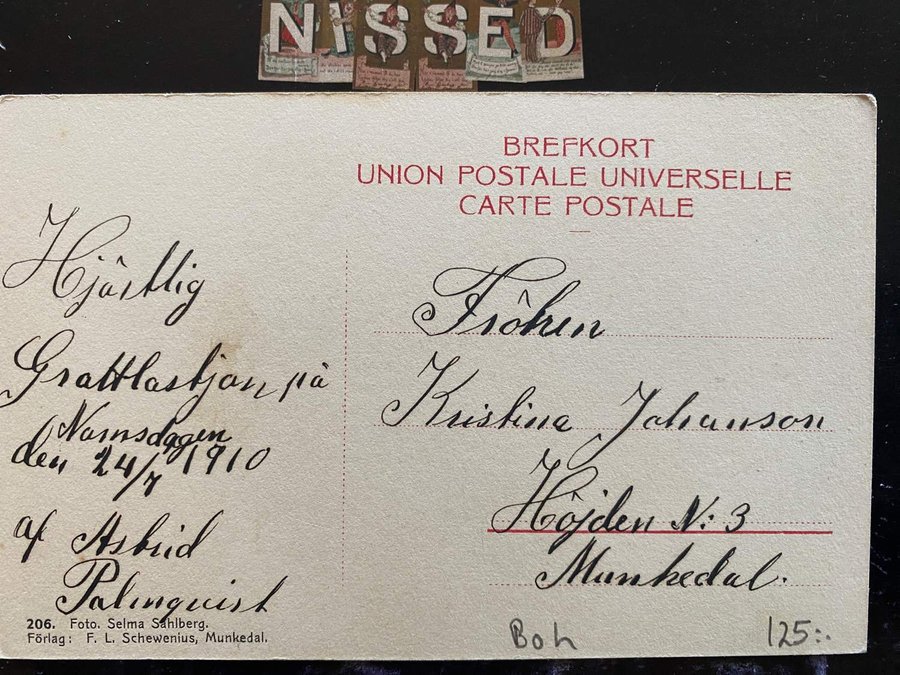 NISSED
BREFKORT
UNION POSTALE UNIVERSELLE
CARTE POSTALE
Hjärtlig
Grattlastjon på
Namsdagen
den 24/7 1910
af Astrid
Palmquist
206. Foto. Selma Sahlberg.
Förlag: F. L. Schewenius, Munkedal.
Fröken
Kristina Johanson
Höjden N: 3
Munkedal.
Boh
125:-